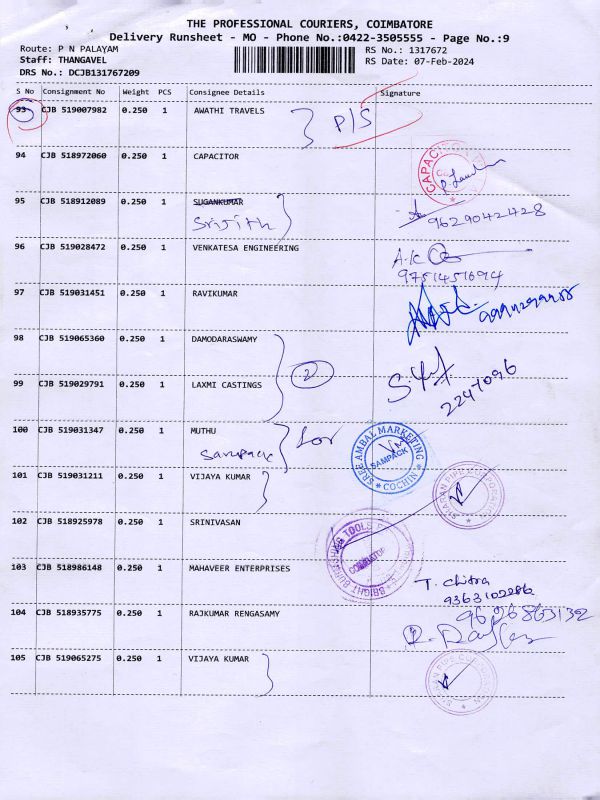 THE PROFESSIONAL COURIERS, COIMBATORE
Delivery Runsheet - MO - Phone No.:0422-3505555 - Page No.:9
Route: P N PALAYAM RS No.: 1317672
Staff: THANGAVEL RS Date: 07-Feb-2024
DRS No.: DCJB131767209
S No Consignment No Weight PCS Consignee Details Signature
93 CJB 519007982 0.250 1 AWATHI TRAVELS P/S
94 CJB 518972060 0.250 1 CAPACITOR
95 CJB 518912089 0.250 1 SUGANKUMAR
Srijith 9629042428
96 CJB 519028472 0.250 1 VENKATESA ENGINEERING A.K
9751451694
97 CJB 519031451 0.250 1 RAVIKUMAR
98 CJB 519065360 0.250 1 DAMODARASWAMY
2
99 CJB 519029791 0.250 1 LAXMI CASTINGS
2247096
100 CJB 519031347 0.250 1 MUTHU for
Sampack SREE AMBAL MARKETING SAMPACK COCHIN
101 CJB 519031211 0.250 1 VIJAYA KUMAR
102 CJB 518925978 0.250 1 SRINIVASAN
103 CJB 518986148 0.250 1 MAHAVEER ENTERPRISES T. Chitra
9363102286
104 CJB 518935775 0.250 1 RAJKUMAR RENGASAMY 9626863132
105 CJB 519065275 0.250 1 VIJAYA KUMAR